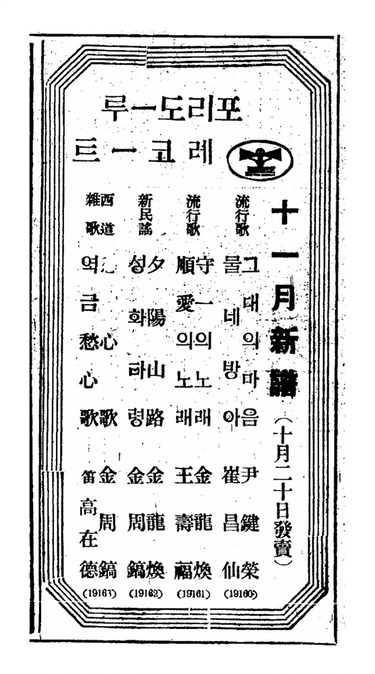 포리도ー루
레코ー트
十一月新譜 (十月二十日發賣)
流行歌
그대의마음 尹鍵榮
물네방아 崔昌仙
(19160)
流行歌
守一의노래 金龍煥
順愛의노래 王壽福
(19161)
新民謠
夕陽山路 金龍煥
성화타령 金周鎬
(19162)
西道
雜歌
心歌 金周鎬
역금愁心歌 笛高在德
(19163)